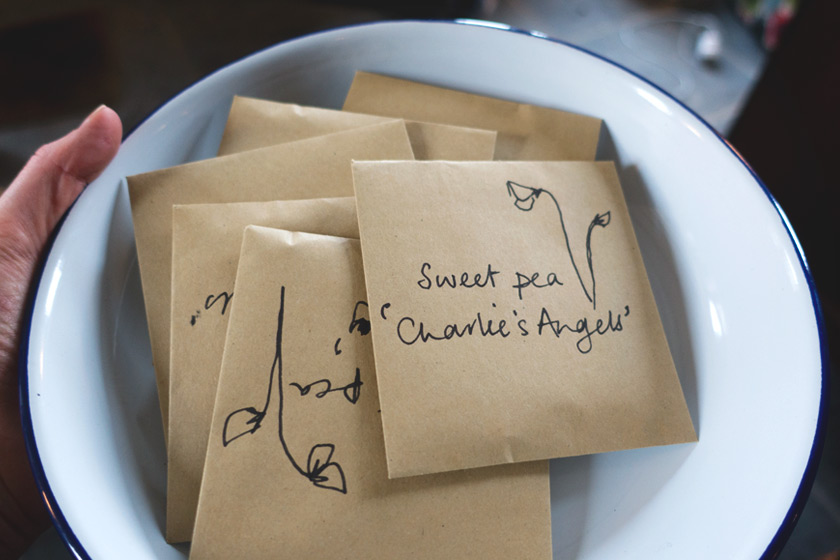 Sweet pea
'Charlie's Angels'
pea